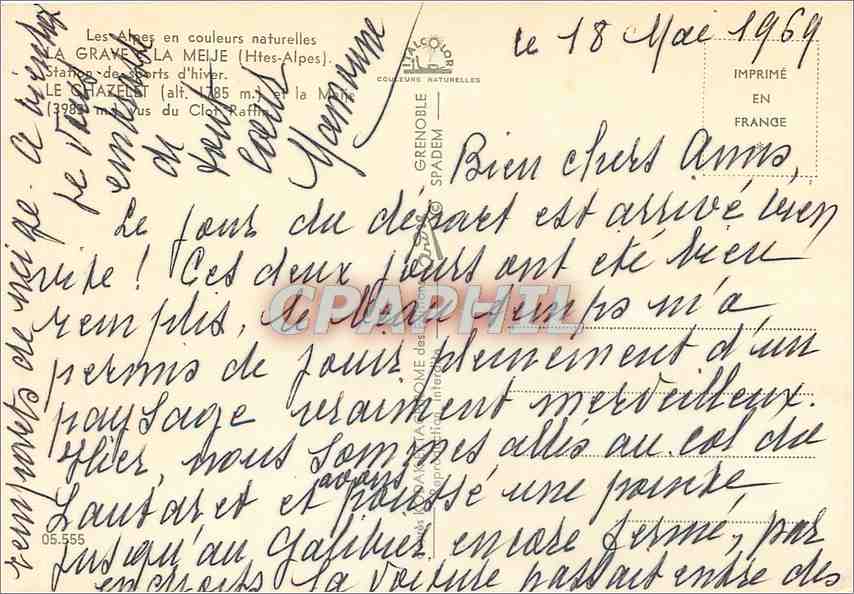 Les Alpes en couleurs naturelles
LA GRAVE - LA MEIJE (Htes-Alpes).
Station de sports d'hiver.
LE CHAZELET (alt. 1785 m.) et la Meije
(3983 m.) vus du Clot Raffin
ITALCOLOR
COULEURS NATURELLES
IMPRIMÉ
EN
FRANCE
*
le 18 Mai 1969
Bien chers Amis,
Le jour du départ est arrivé bien
vite ! Ces deux jours ont été bien
remplis, le beau temps m'a
permis de jouir pleinement d'un
paysage vraiment merveilleux.
Hier, nous sommes allés au col du
Lautaret et avons poussé une pointe
jusqu'au Galibier encore fermé, par
endroits la voiture passait entre des
remparts de neige. A bientôt
je vous
embrasse
de
tout
cœur
GRENOBLE
SPADEM
Reproduction interdite
05.555
CPAPHIL